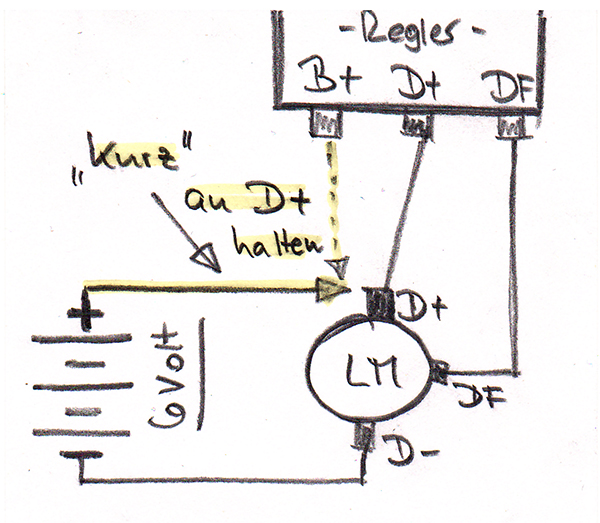 -Regler-
B+ D+ DF
„Kurz"
an D+
halten
D+
+
6 Volt
LM
DF
D-